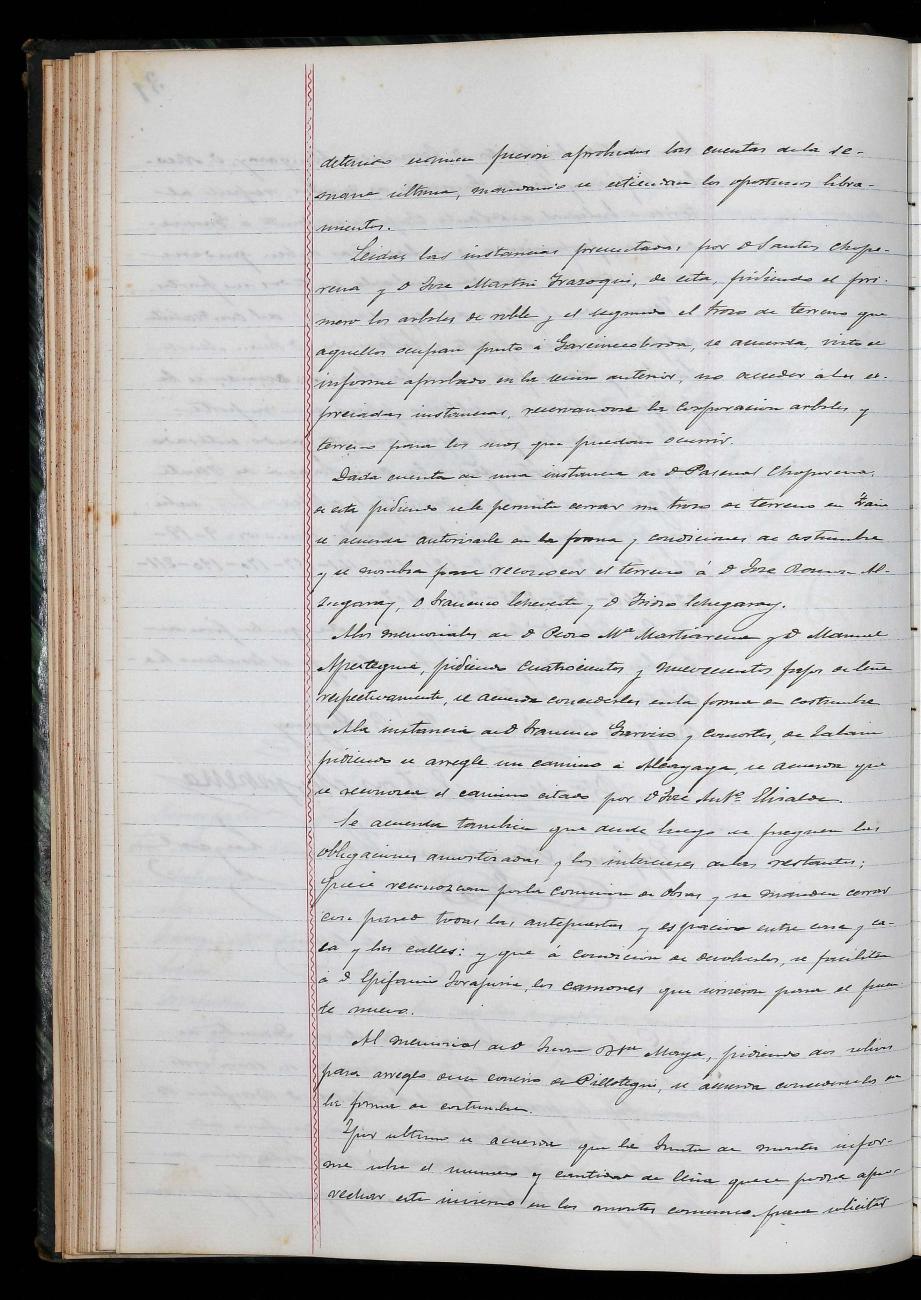 detenido examen fueron aprobadas las cuentas de la se-
mana ultima, mandando se estiendan los oportunos libra-
mientos.
Leidas las instancias presentadas por D Santos Chope-
rena y D Jose Martin Irazoqui, de esta, pidiendo el pri-
mero los arboles de roble y el segundo el trozo de terreno que
aquellos ocupan junto á se acuerda, visto el
informe aprobado en la sesion anterior, no acceder a las ex-
presadas instancias, reservandose la Corporacion arboles y
terreno para los usos que puedan ocurrir.
Dada cuenta de una instancia de D Pascual Choperena,
de esta pidiendo se le permita cerrar un trozo de terreno en
se acuerda autorizarle en la forma y condiciones de costumbre
y se nombra para reconocer el terreno á D Jose Ramon Al-
zugaray, D Francisco Echeveste y D Isidro Echegaray.
A los memoriales de D Pedro Mª Martiarena y D Manuel
Apesteguia, pidiendo cuatrocientos y nuevecientos fajos de leña
respectivamente, se acuerda concederles en la forma de costumbre
A la instancia de D Francisco y consortes, de
pidiendo se arregle un camino á Alcayaga, se acuerda que
se reconozca el camino citado por D Jose Antº Elizalde.
Se acuerda tambien que desde luego se paguen las
obligaciones amortizadas y los intereses de las restantes;
que se reconozcan por la comision de obras y se manden cerrar
con pared todas las antepuertas y espacios entre casa y ca-
sa y las calles: y que á condicion de devolverlos, se faciliten
á D Epifanio los camones que sirvieron para el puen-
te nuevo.
Al memorial de D Juan Bta Maya, pidiendo dos robles
para arreglo de un de se acuerda concederselos en
la forma de costumbre.
Y por ultimo se acuerda que la Junta de montes infor-
me sobre el numero y cantidad de leña que se podra apro-
vechar este invierno en los montes comunes para solicitar